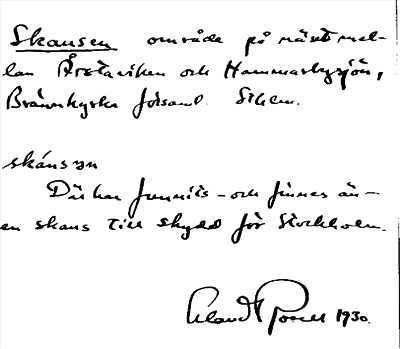 Skansen område på näset mel-
lan Årstaviken och Hammarbysjön,
Brännkyrka församl. Sthlm.
skánsɘn
Där har funnits – och finnes än –
en skans till skydd för Stockholm.
1930.